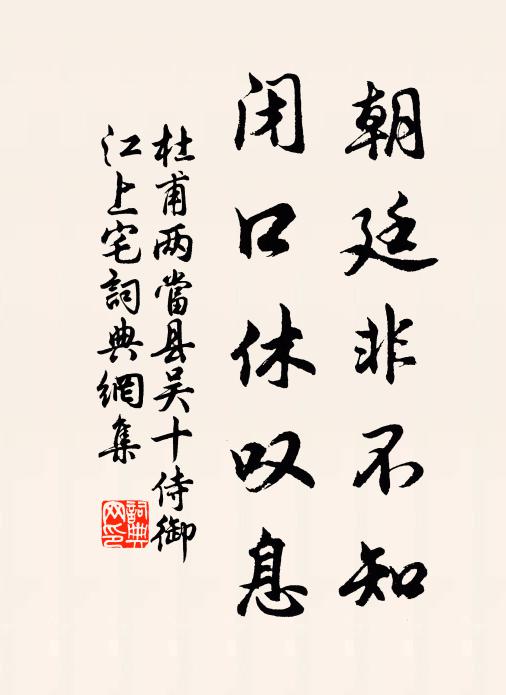 朝廷非不知
闭口休叹息
杜甫两當县吴十侍御
江上宅詞典網集
詞典
网印